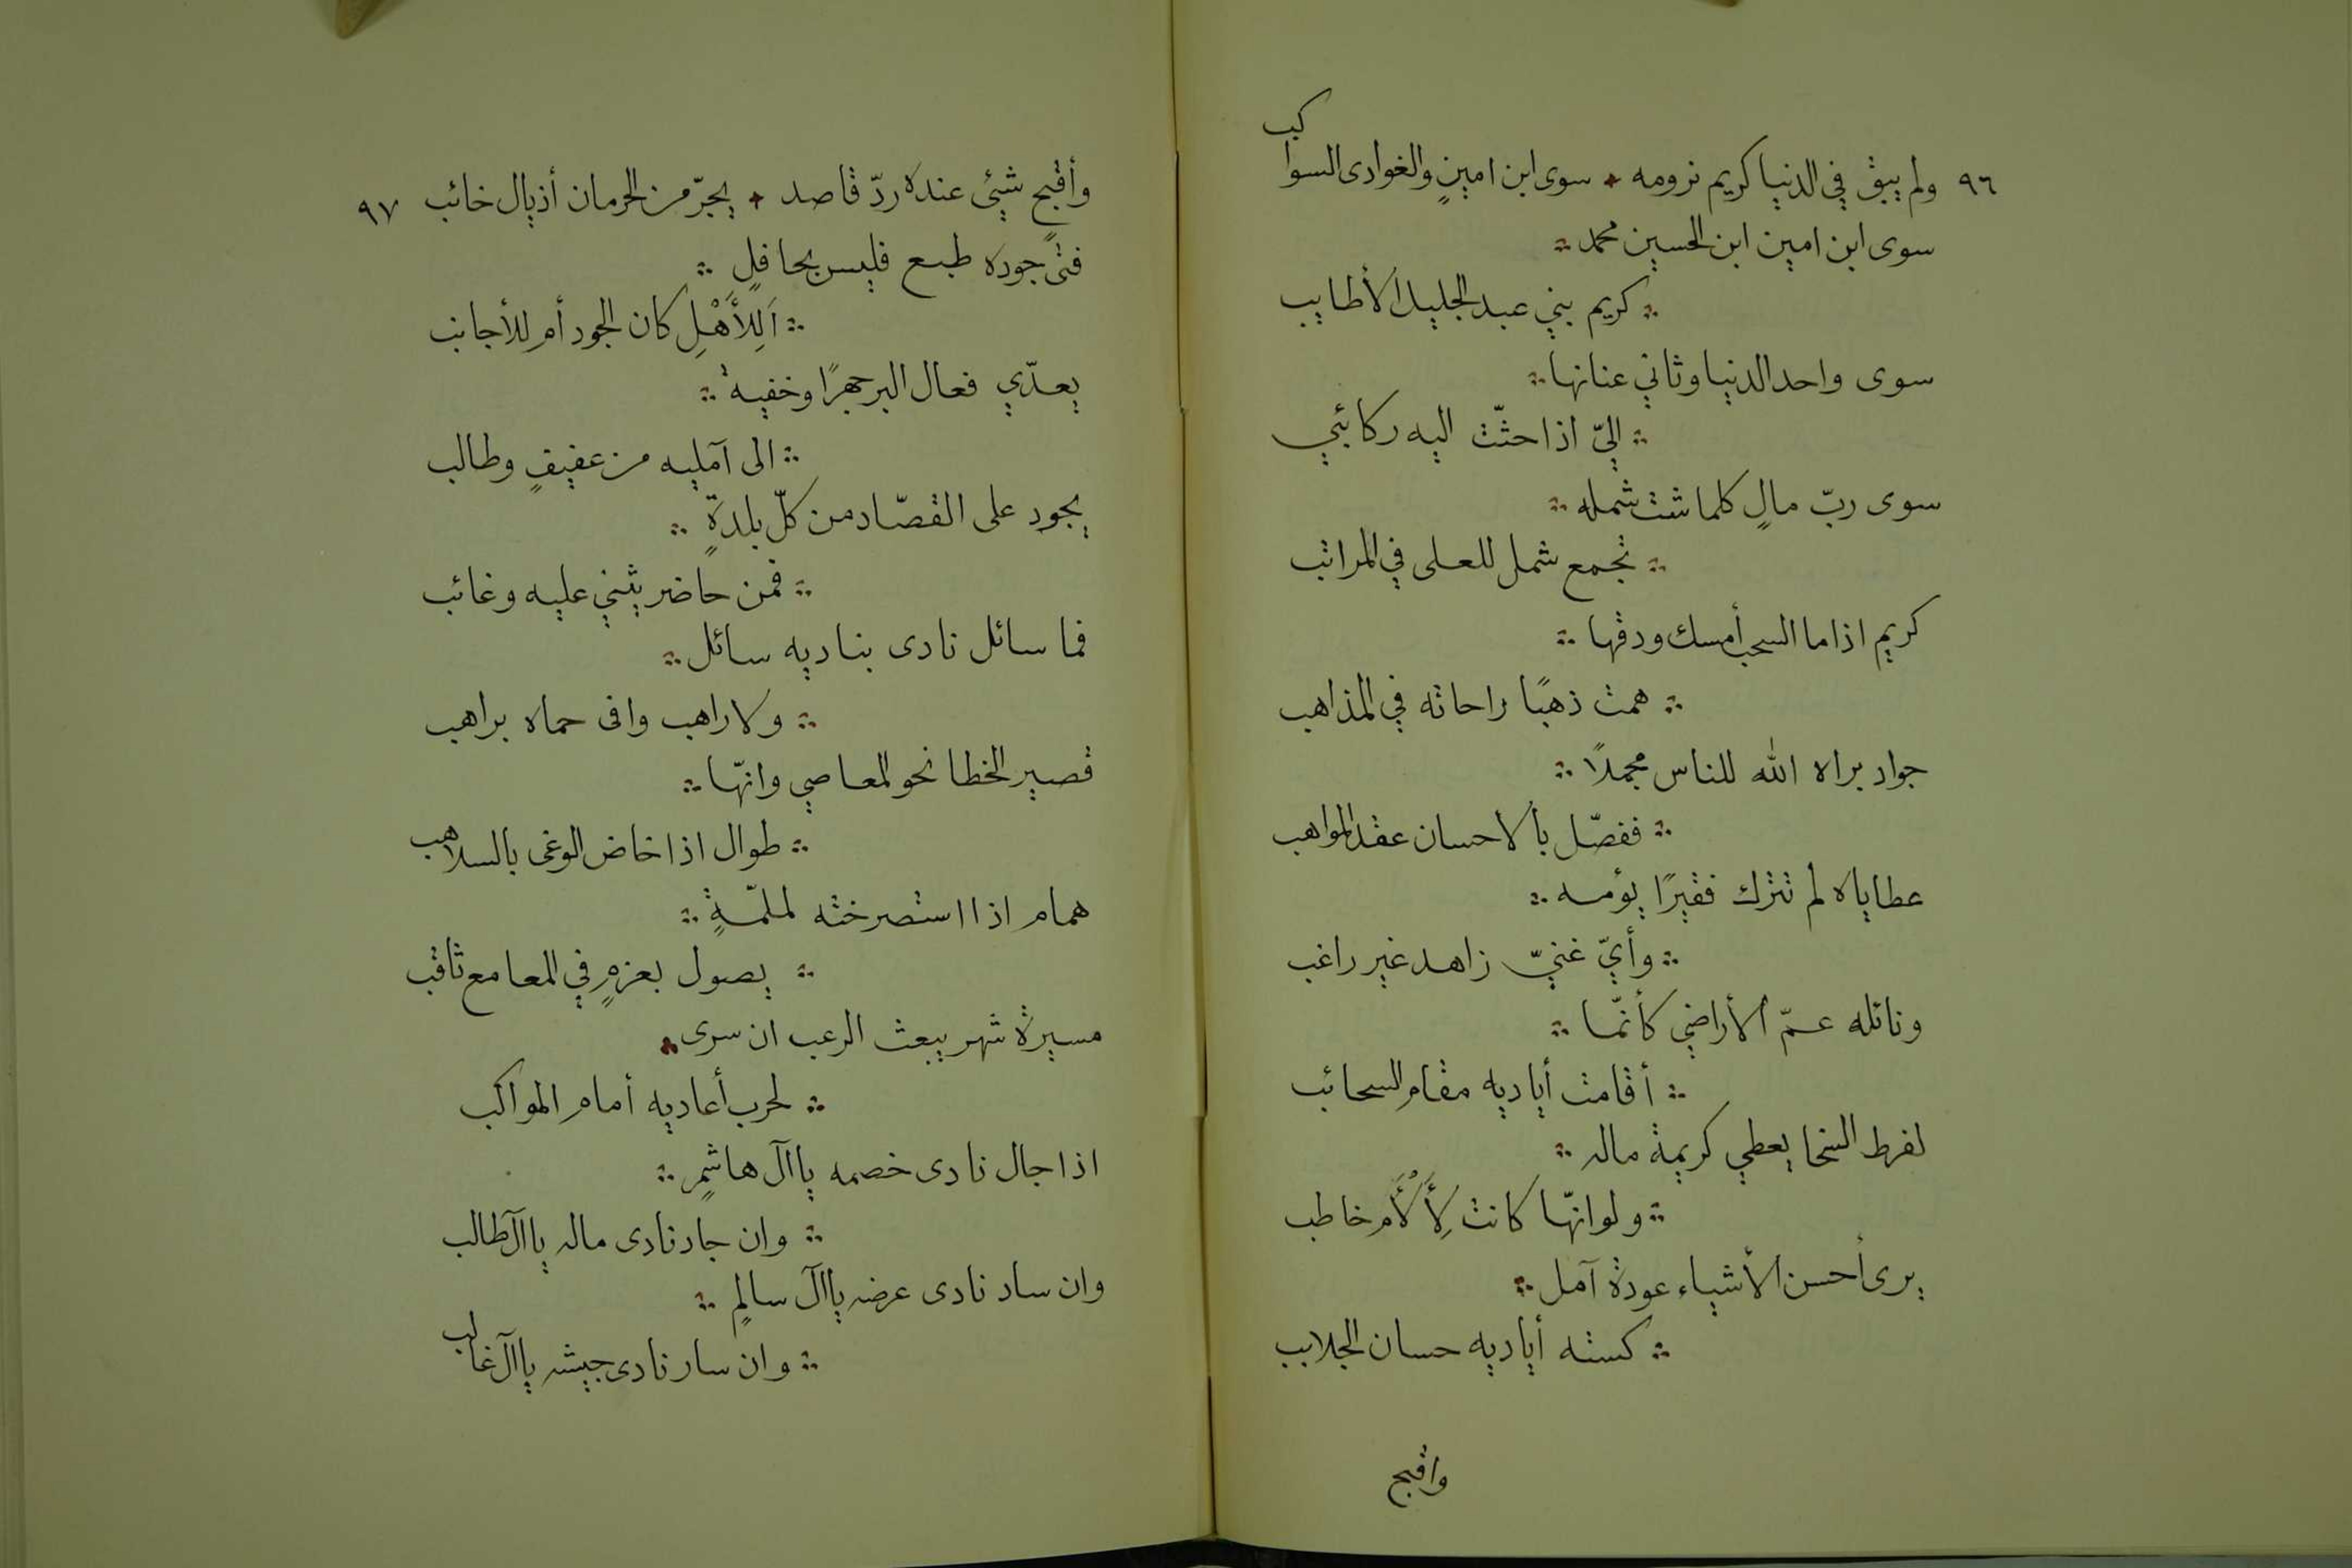 ٩٦ ولم يبق في الدنيا كريم نرومه سوى ابن امينٍ والغوادى السواكب
سوى ابن امين ابن الحسين محمد
كريم بني عبد الجليل الأطايب
سوى واحد الدنيا وثاني عنانها
إليّ اذا حثّت اليه ركائبي
سوى ربّ مالٍ كلما شت شمله
تجمع شمل للعلى في المراتب
كريم اذا ما السحب أمسك ودقها
همت ذهبًا راحاته في المذاهب
جواد براه الله للناس مجملاً
ففصّل بالاحسان عقد المواهب
عطاياه لم تترك فقيرًا يؤمه
وأيّ غنيّ زاهد غير راغب
ونائله عمّ الأراضي كأنّما
أقامت أياديه مقام السحائب
لفرط السخا يعطي كريمة ماله
ولو انّها كانت لِأَلْأَم خاطب
يرى أحسن الأشياء عودة آمل
كسته أياديه حسان الجلابب
واقبح
وأقبح شيئ عنده ردّ قاصد يجرّ من الحرمان أذيال خائب ٩٧
فتىً جوده طبع فليس بحافلٍ
اَلِلأَهْلِ كان الجود أم للأجانب
يعدّي فعال البر جهرًا وخفية
الى آمليه من عفيفٍ وطالب
يجود على القصّاد من كلّ بلدةٍ
فمن حاضر يثني عليه وغائب
فما سائل نادى بناديه سائل
ولا راهب وافى حماه براهب
قصير الخطا نحو المعاصي وانّها
طوال اذا خاض الوغى بالسلاهب
همام اذا استصرخته لملمّةٍ
يصول بعزمٍ في المعامع ثاقب
مسيرة شهر يبعث الرعب ان سرى
لحرب أعاديه أمام المواكب
اذا جال نادى خصمه يا آل هاشمٍ
وان جاد نادى ماله يا آل طالب
وان ساد نادى عرضه يا آل سالمٍ
وان سار نادى جيشه يا آل غالب